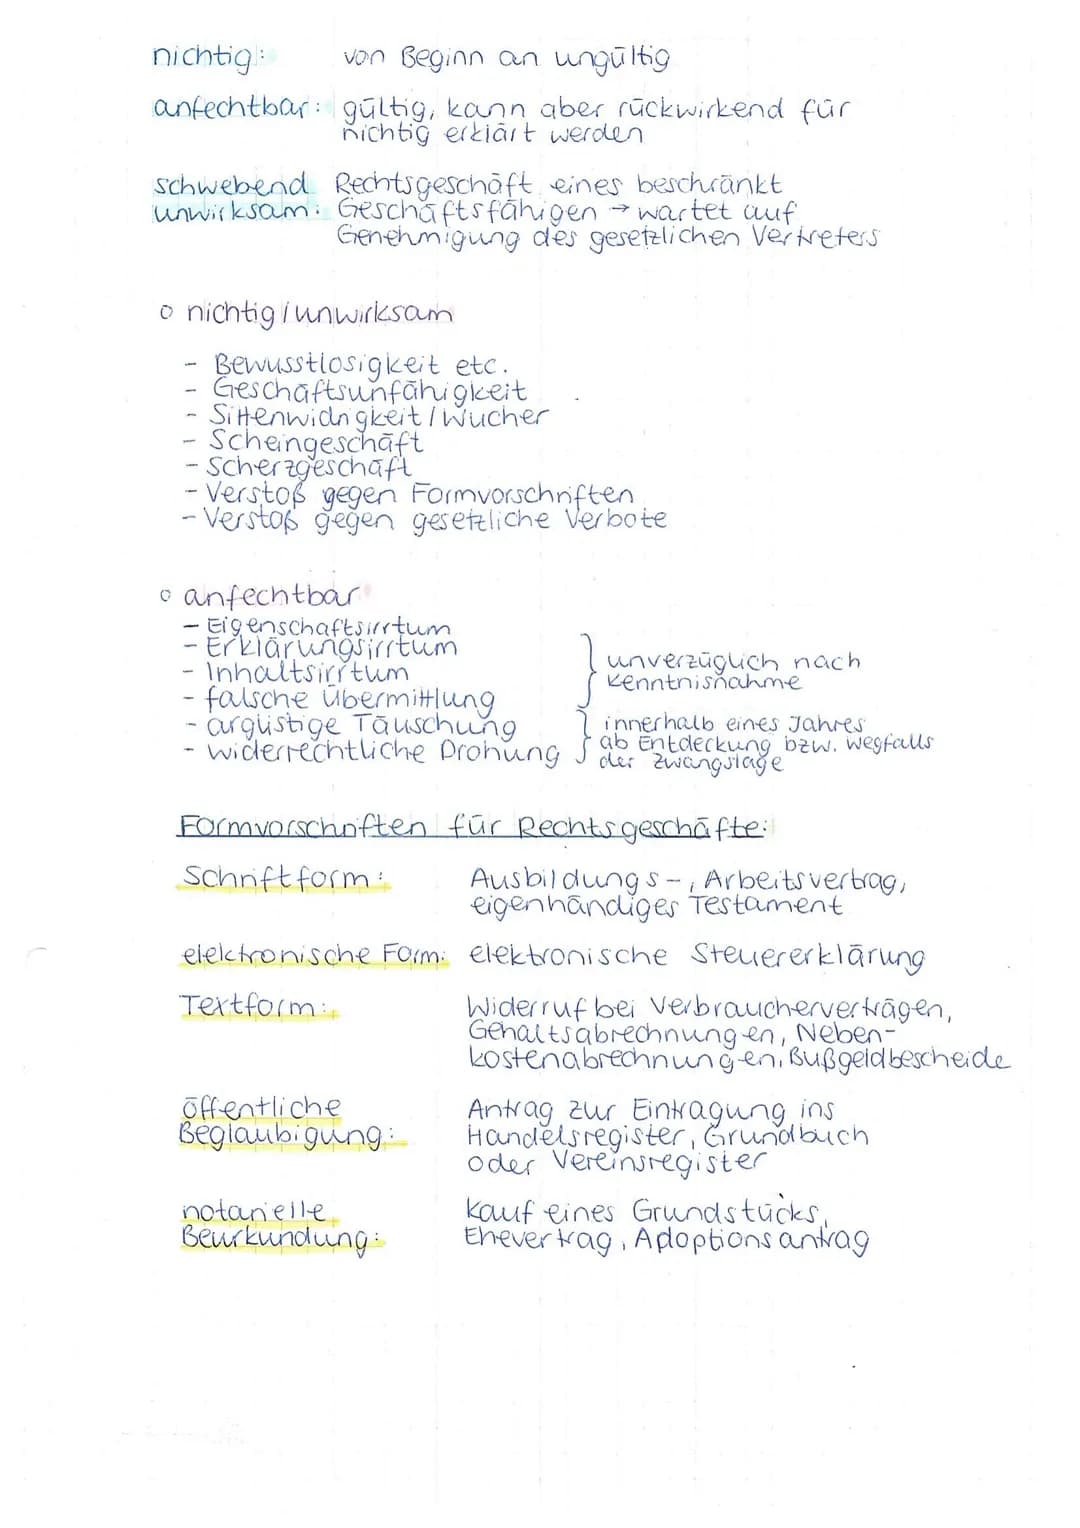 nichtig: von Beginn an ungültig
anfechtbar: gültig, kann aber rückwirkend für
nichtig erklärt werden
schwebend Rechtsgeschäft eines beschränkt
unwirksam: Geschäftsfähigen → wartet auf
Genehmigung des gesetzlichen Vertreters
o nichtig / unwirksam
- Bewusstlosigkeit etc.
- Geschäftsunfähigkeit
- Sittenwidrigkeit / Wucher
- Scheingeschäft
- Scherzgeschäft
- Verstoß gegen Formvorschriften
- Verstoß gegen gesetzliche Verbote
o anfechtbar
- Eigenschaftsirrtum
- Erklärungsirrtum
- Inhaltsirrtum
- falsche Übermittlung
unverzüglich nach
Kenntnisnahme
- arglistige Täuschung
- widerrechtliche Drohung
innerhalb eines Jahres
ab Entdeckung bzw. Wegfalls
der Zwangslage
Formvorschriften für Rechtsgeschäfte:
Schriftform: Ausbildungs-, Arbeitsvertrag,
eigenhändiges Testament
elektronische Form: elektronische Steuererklärung
Textform: Widerruf bei Verbraucherverträgen,
Gehaltsabrechnungen, Neben-
kostenabrechnungen, Bußgeldbescheide
öffentliche Antrag zur Eintragung ins
Beglaubigung: Handelsregister, Grundbuch
oder Vereinsregister
notarielle Kauf eines Grundstücks,
Beurkundung: Ehevertrag, Adoptionsantrag